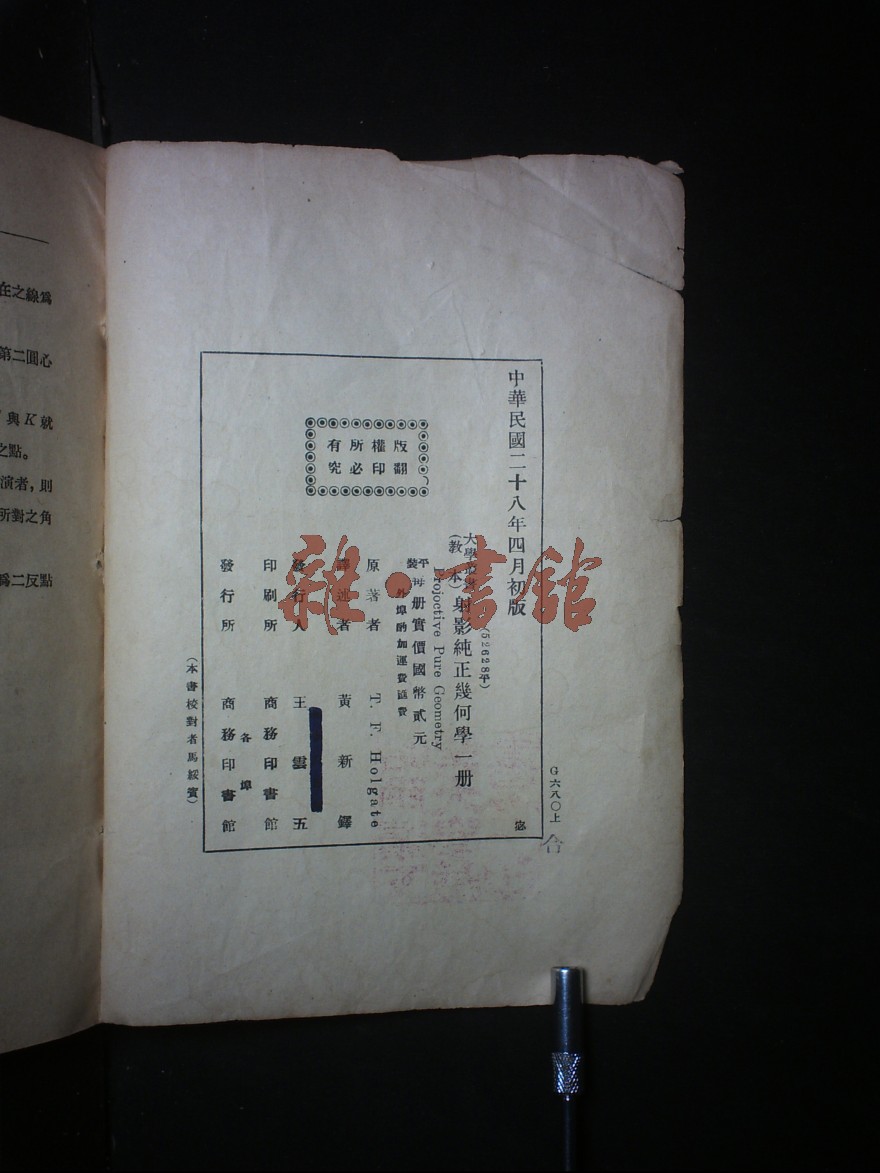 中華民國二十八年四月初版
(52628平)
大學叢書
(教本)
射影純正幾何學一册
Projective Pure Geometry
平裝每册實價國幣貳元
外埠酌加運費匯費
原著者 T. F. Holgate
譯述者 黃新鐸
發行人 王雲五
印刷所 商務印書館
發行所 各埠 商務印書館
(本書校對者馬綏賓)
版權所有
翻印必究
G六八〇上
宓
合
雜·書館
在之線爲
第二圓心
與K就
之點。
演者，則
所對之角
爲二反點